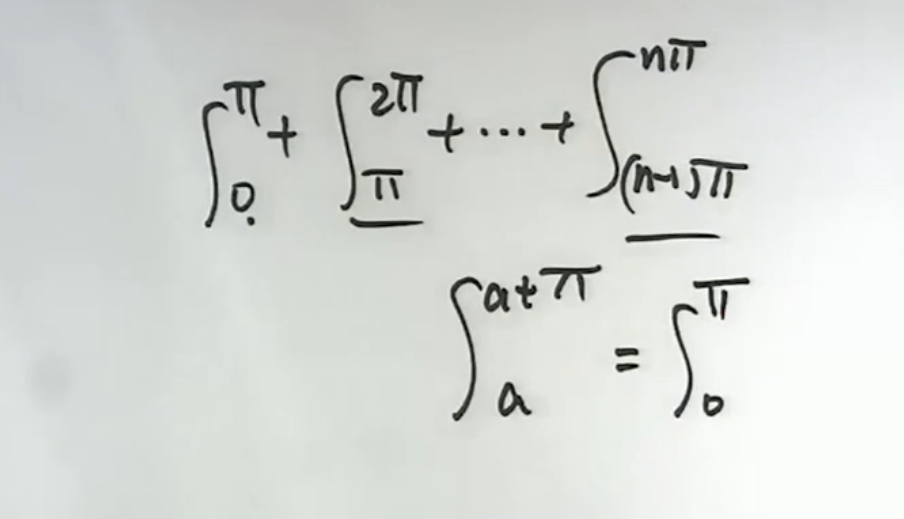 ∫₀^π + ∫_π^{2π} + ⋯ + ∫_{(n-1)π}^{nπ}
∫_a^{a+π} = ∫₀^π